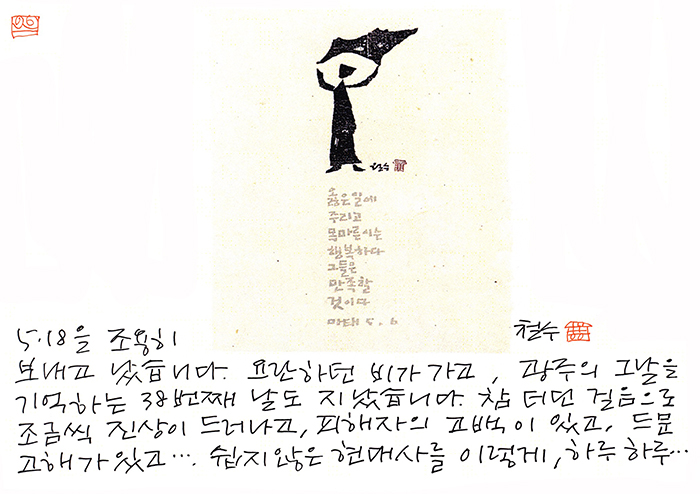 철수
옳은일에
주리고
목마른이는
행복하다
그들은
만족할
것이다
마태 5, 6
철수
5·18을 조용히
보내고 났습니다. 요란하던 비가 가고, 광주의 그날을
기억하는 38번째 날도 지났습니다. 참 더딘 걸음으로
조금씩 진상이 드러나고, 피해자의 고백이 있고, 드문
고해가 있고···. 쉽지않은 현대사를 이렇게, 하루 하루···